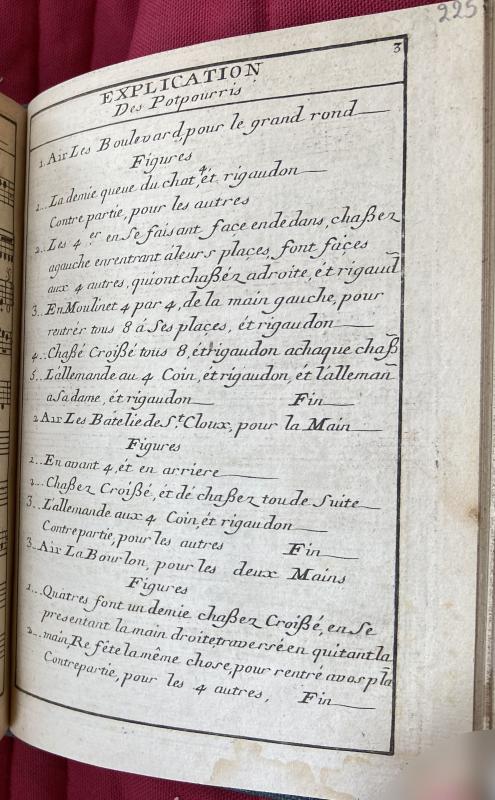 225
3
EXPLICATION
Des Potpourris
1. Air Les Boulevard, pour le grand rond
Figures
1.. La demie queue du chat, 4. ét rigaudon
Contre partie, pour les autres
2.. Les 4 er en Se faisant façe endedans, chaßez
agauche enrentrant áleurs plaçes, font façes
aux 4 autres, quiont chaßéz adroite, ét rigaud
3.. En Moulinet 4 par 4, de la main gauche, pour
rentrér tous 8 á Ses plaçes, ét rigaudon
4.. Chaßé Croißé tous 8, ét rigaudon achaque chaß
5.. L'allemande au 4 Coin, ét rigaudon, ét l'alleman̄
a Sa dame, ét rigaudon Fin
2 Air Les Bátelié de S.t Cloux, pour la Main
Figures
1.. En avant 4, ét en arriere
2.. Chaßez Croißé, ét dé chaßez toude Suite
3.. L'allemande aux 4 Coin, ét rigaudon
Contrepartie, pour les autres Fin
3. Air La Bourlon, pour les deux Mains
Figures
1... Quatres font un demie chaßez Croißé, en Se
presentant la main droite, traversé en quitant la
2.. main, Re féte la méme chose, pour rentré avos pla
Contrepartie, pour les 4 autres. Fin